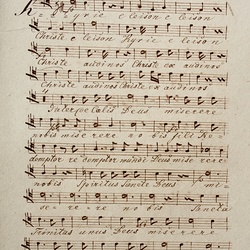 Kyrie eleison eleison
Christe eleison Kyrie eleison
Christe audinos Christe ex audinos
Christe audinos Christe ex audinos
Pater de Calis Deus miserere
nobis miserere nobis fili Re
demptor redemptor mundi Deus miserere
nobis Spiritus Sancte Deus mi
serere nobis Sancta
Trinitas unus Deus miserere